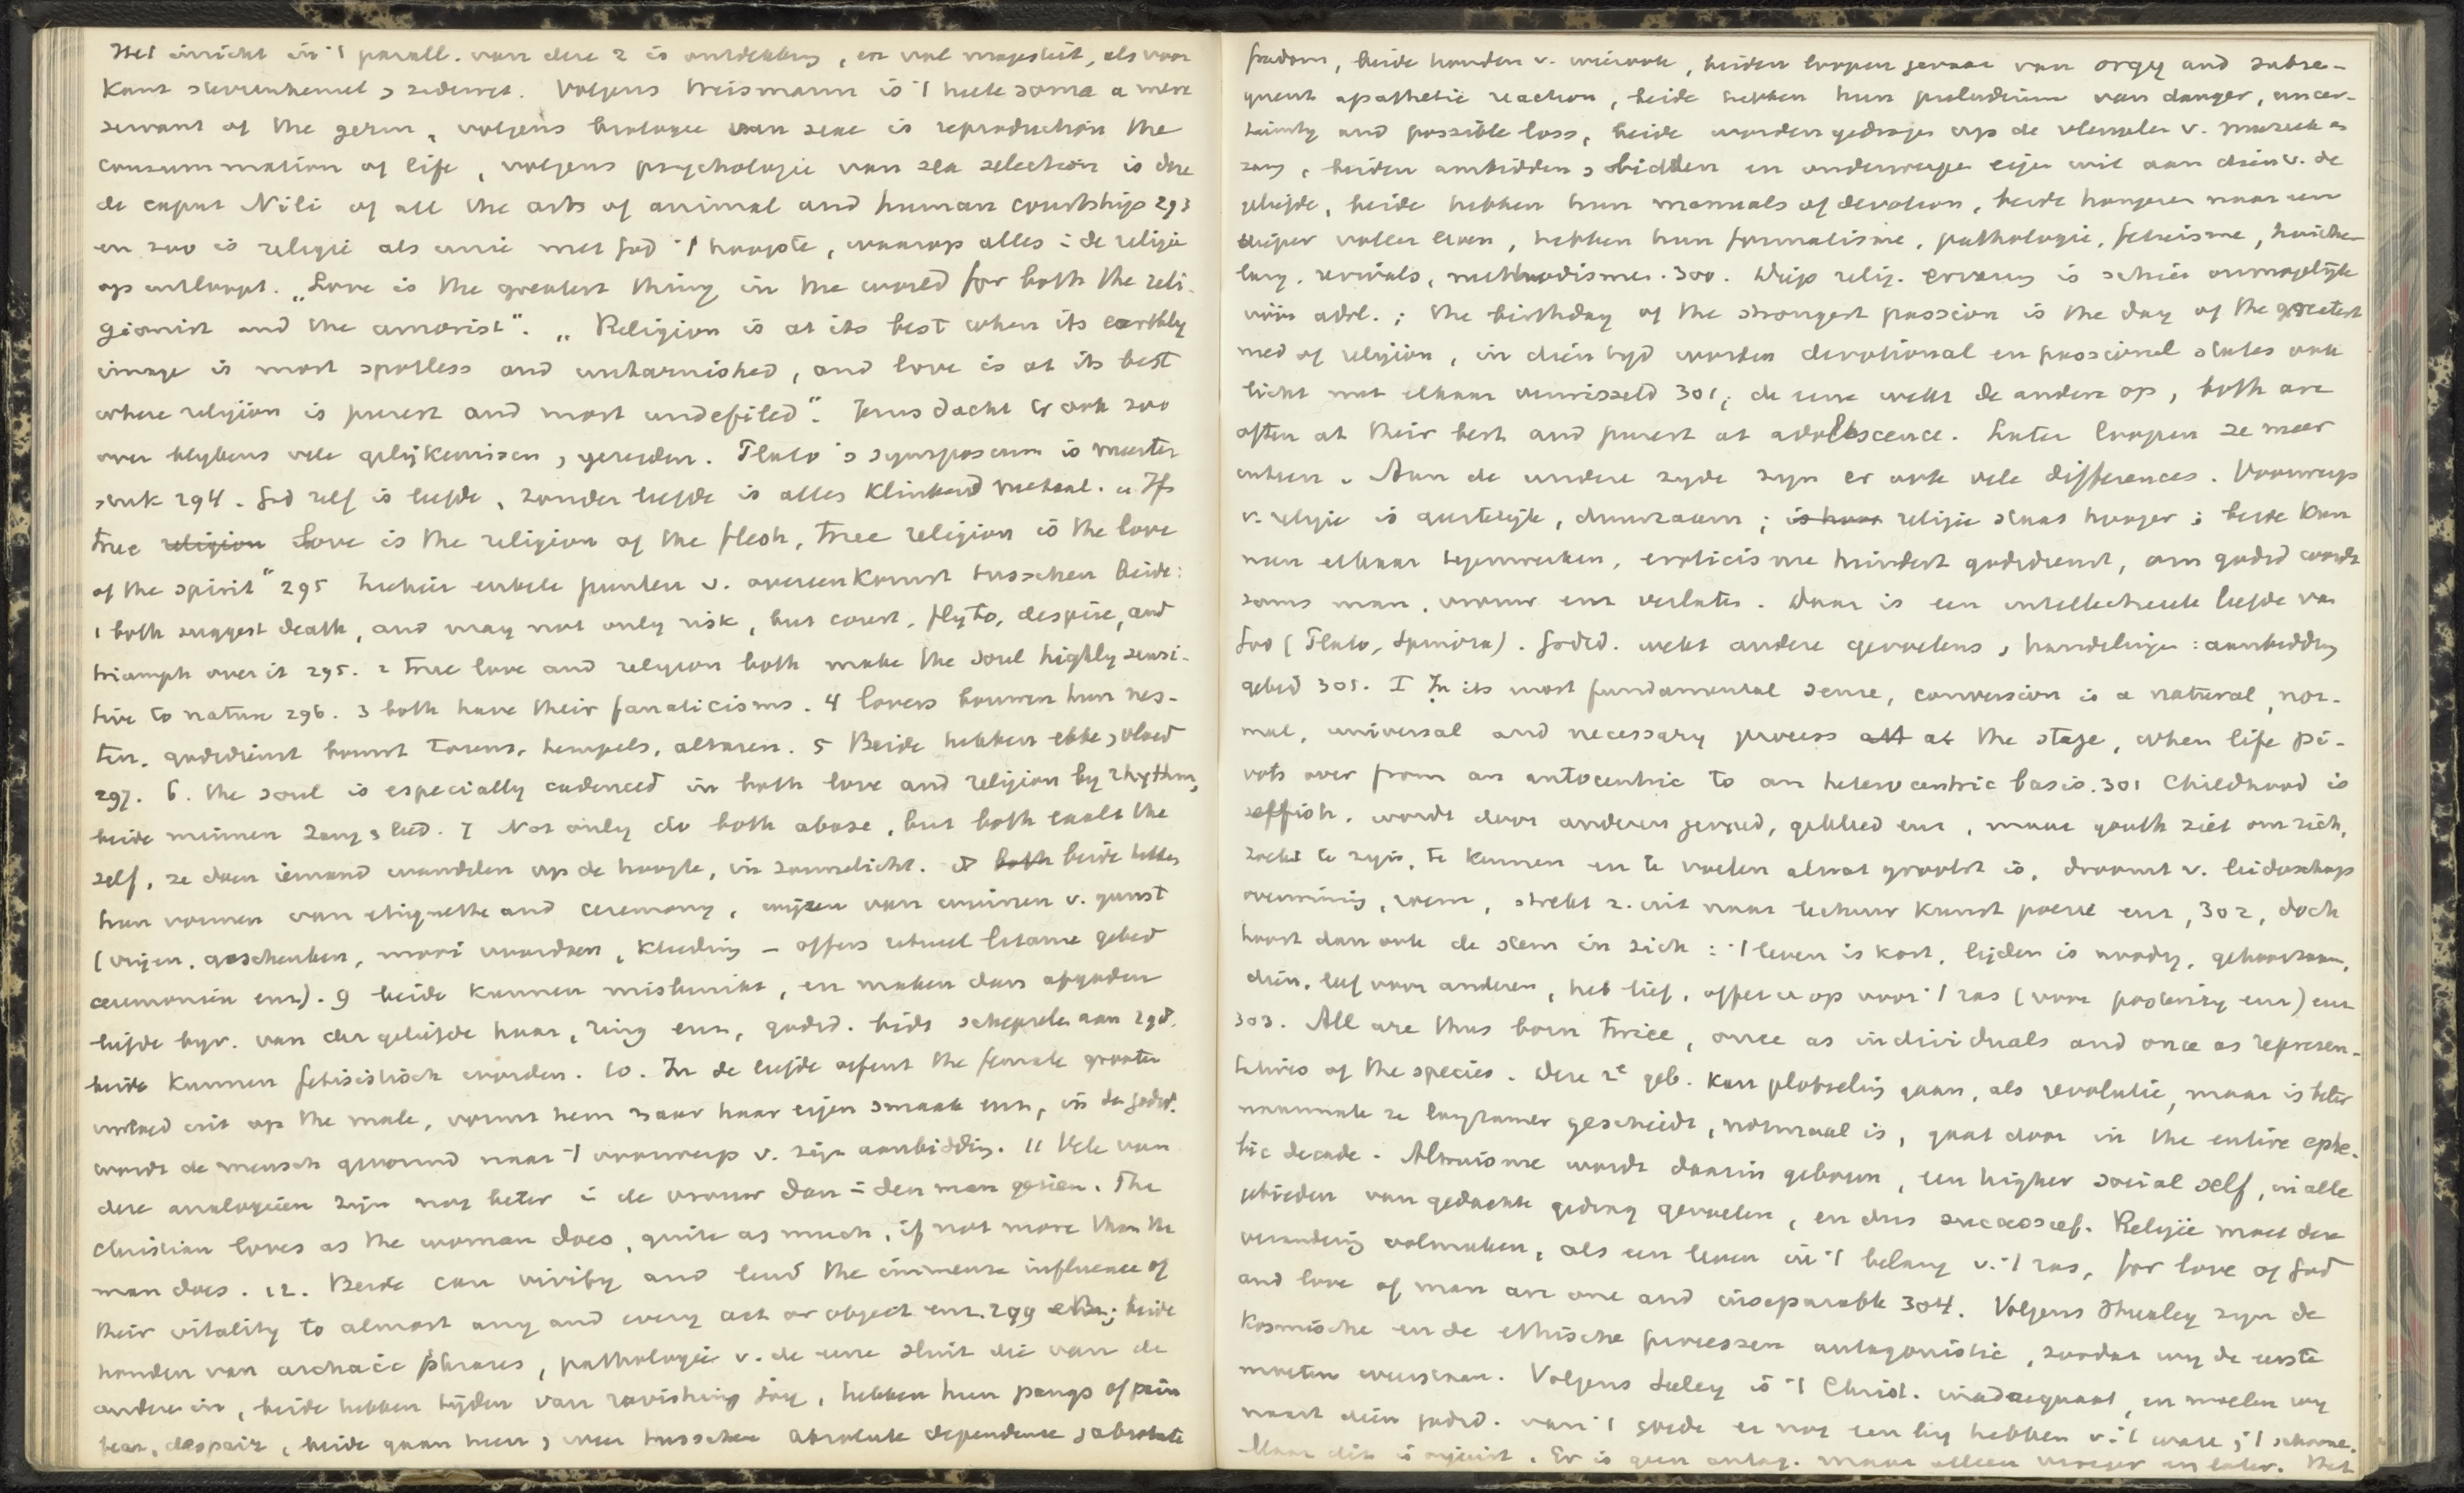 Het inzicht in 't parall. van deze 2 is ontdekking, en vol majesteit, als voor
Kant sterrenhemel & zedewet. Volgens Weismann is 't heele soma a mere
servant of the germ, volgens biologie van sexe is reproduction the
consummation of life, volgens psychologie van sex selection is deze
de caput Nili of all the arts of animal and human courtship 293
en zoo is religie als unie met God 't hoogste, waarop alles i. de religie
op uitloopt. „Love is the greatest thing in the world for both the reli-
gionist and the amorist". „Religion is at its best when its earthly
image is most spotless and untarnished, and love is at its best
where religion is purest and most undefiled". Jezus dacht er ook zoo
over blijkens vele gelijkenissen, gezegden. Plato's symposium is meester
stuk 294. God zelf is liefde, zonder liefde is alles klinkend metaal. „If
true religion Love is the religion of the flesh, true religion is the love
of the spirit" 295 Ziehier enkele punten v. overeenkomst tusschen beide:
1 both suggest death, and may not only risk, but court, fly to, despise, and
triumph over it 295. 2 true love and religion both make the soul highly sensi-
tive to nature 296. 3 both have their fanaticisms. 4 lovers bouwen hun nes-
ten, godsdienst bouwt torens, tempels, altaren. 5 Beide hebben ebbe & vloed
297. 6. the soul is especially cadenced in both love and religion by rhythm,
beide minnen zang & lied. 7 Not only do both abase, but both exalt the
self, ze doen iemand wandelen op de hoogte, in zonnelicht. 8 both beide hebben
hun vormen van etiquette and ceremony, wijzen van winnen v. gunst
(vrijen, geschenken, mooi woorden, kleding – offers ritueel litanie gebed
ceremoniën enz). 9 beide kunnen misbruikt, en maken dan afgoden
liefde bijv. van der geliefde haar, ring enz, godsd. bidt schepselen aan 298.
beide kunnen fetisistisch worden. 10. In de liefde oefent the female grooten
invloed uit op the male, vormt hem naar haar eigen smaak enz, in de godsd.
wordt de mensch gevormd naar 't voorwerp v. zijn aanbidding. 11 Vele van
deze analogieën zijn nog beter i de vrouw dan i den man gezien. The
Christian loves as the woman does, quite as much, if not more than the
man does. 12. Beide can vivify and lend the immense influence of
their vitality to almost any and every act or object enz. 299 beide
houden van archaic phrases, pathologie v. de eene sluit die van de
andere in, beide hebben tijden van ravishing joy, hebben hun pangs of pain
fear, despair, beide gaan heen & weer tusschen absolute dependence & absolute
freedom, beide houden v. wierook, beiden loopen gevaar van orgy and subse-
quent apathetic reaction, beide hebben hun preludium van danger, uncer-
tainty and possible loss, beide worden gedragen op de vleugelen v. muziek en
zang, beiden aanbidden & bidden en onderwerpen eigen wil aan dien v. de
geliefde, beide hebben hun manuals of devotion, beide hongeren naar een
dieper voller leven, hebben hun formalisme, pathologie, fetisisme, huiche-
larij, revivals, methodismes. 300. Diep relig. ervaring is schier onmogelijk
vóór adol.; the birthday of the strongest passion is the day of the greatest
need of religion, in dien tijd worden devotional en passional states ook
licht met elkaar verwisseld 301; de eene wekt de andere op, both are
often at their best and purest at adolescence. Later loopen ze meer
uiteen. Aan de andere zyde zyn er ook vele differences. Voorwerp
v. religie is geestelijk, duurzaam; is haar religie staat hooger; beide kun-
nen elkaar tegenwerken, eroticisme hindert godsdienst, om godsd wordt
soms man, vrouw enz verlaten. Daar is een intellectueele liefde van
God (Plato, Spinoza). Godsd. wekt andere gevoelens, handelingen: aanbidding
gebed 305. I In its most fundamental sense, conversion is a natural, nor-
mal, universal and necessary process att at the stage, when life pi-
vots over from an autocentric to an heterocentric basis. 301 Childhood is
selfish, wordt door anderen gevoed, gekleed enz, maar youth ziet om zich,
zoekt te zyn, te kennen en te voelen alwat grootst is, droomt v. leiderschap
overwinning, roem, strekt z. uit naar lectuur kunst poezie enz, 302, doch
hoort dan ook de stem in zich: 't leven is kort, lijden is noodig, gehoorzaam,
dien, leef voor anderen, heb lief, offer u op voor 't ras (voor posterity enz) enz
303. All are thus born twice, once as individuals and once as represen-
tatives of the species. Deze 2e geb. kan plotseling gaan, als revolutie, maar is beter
naarmate ze langzamer geschiedt, normaal is, gaat door in the entire ephe-
bic decade. Altruisme wordt daarin geboren, een higher social self, in alle
gebieden van gedachte gedrag gevoelen, en dus successief. Religie moet deze
verandering volmaken, als een leven in 't belang v. 't ras, for love of God
and love of man are one and inseparable 304. Volgens Huxley zyn de
kosmische en de ethische processen antagonistic, zoodat wy de eerste
moeten weerstaan. Volgens Seeley is 't Christ. inadaequaat, en moeten wy
naast dien godsd. van 't goede er nog een bij hebben v. 't ware & 't schoone.
Maar dit is onjuist. Er is geen antag. maar alleen vroeger en later. Het